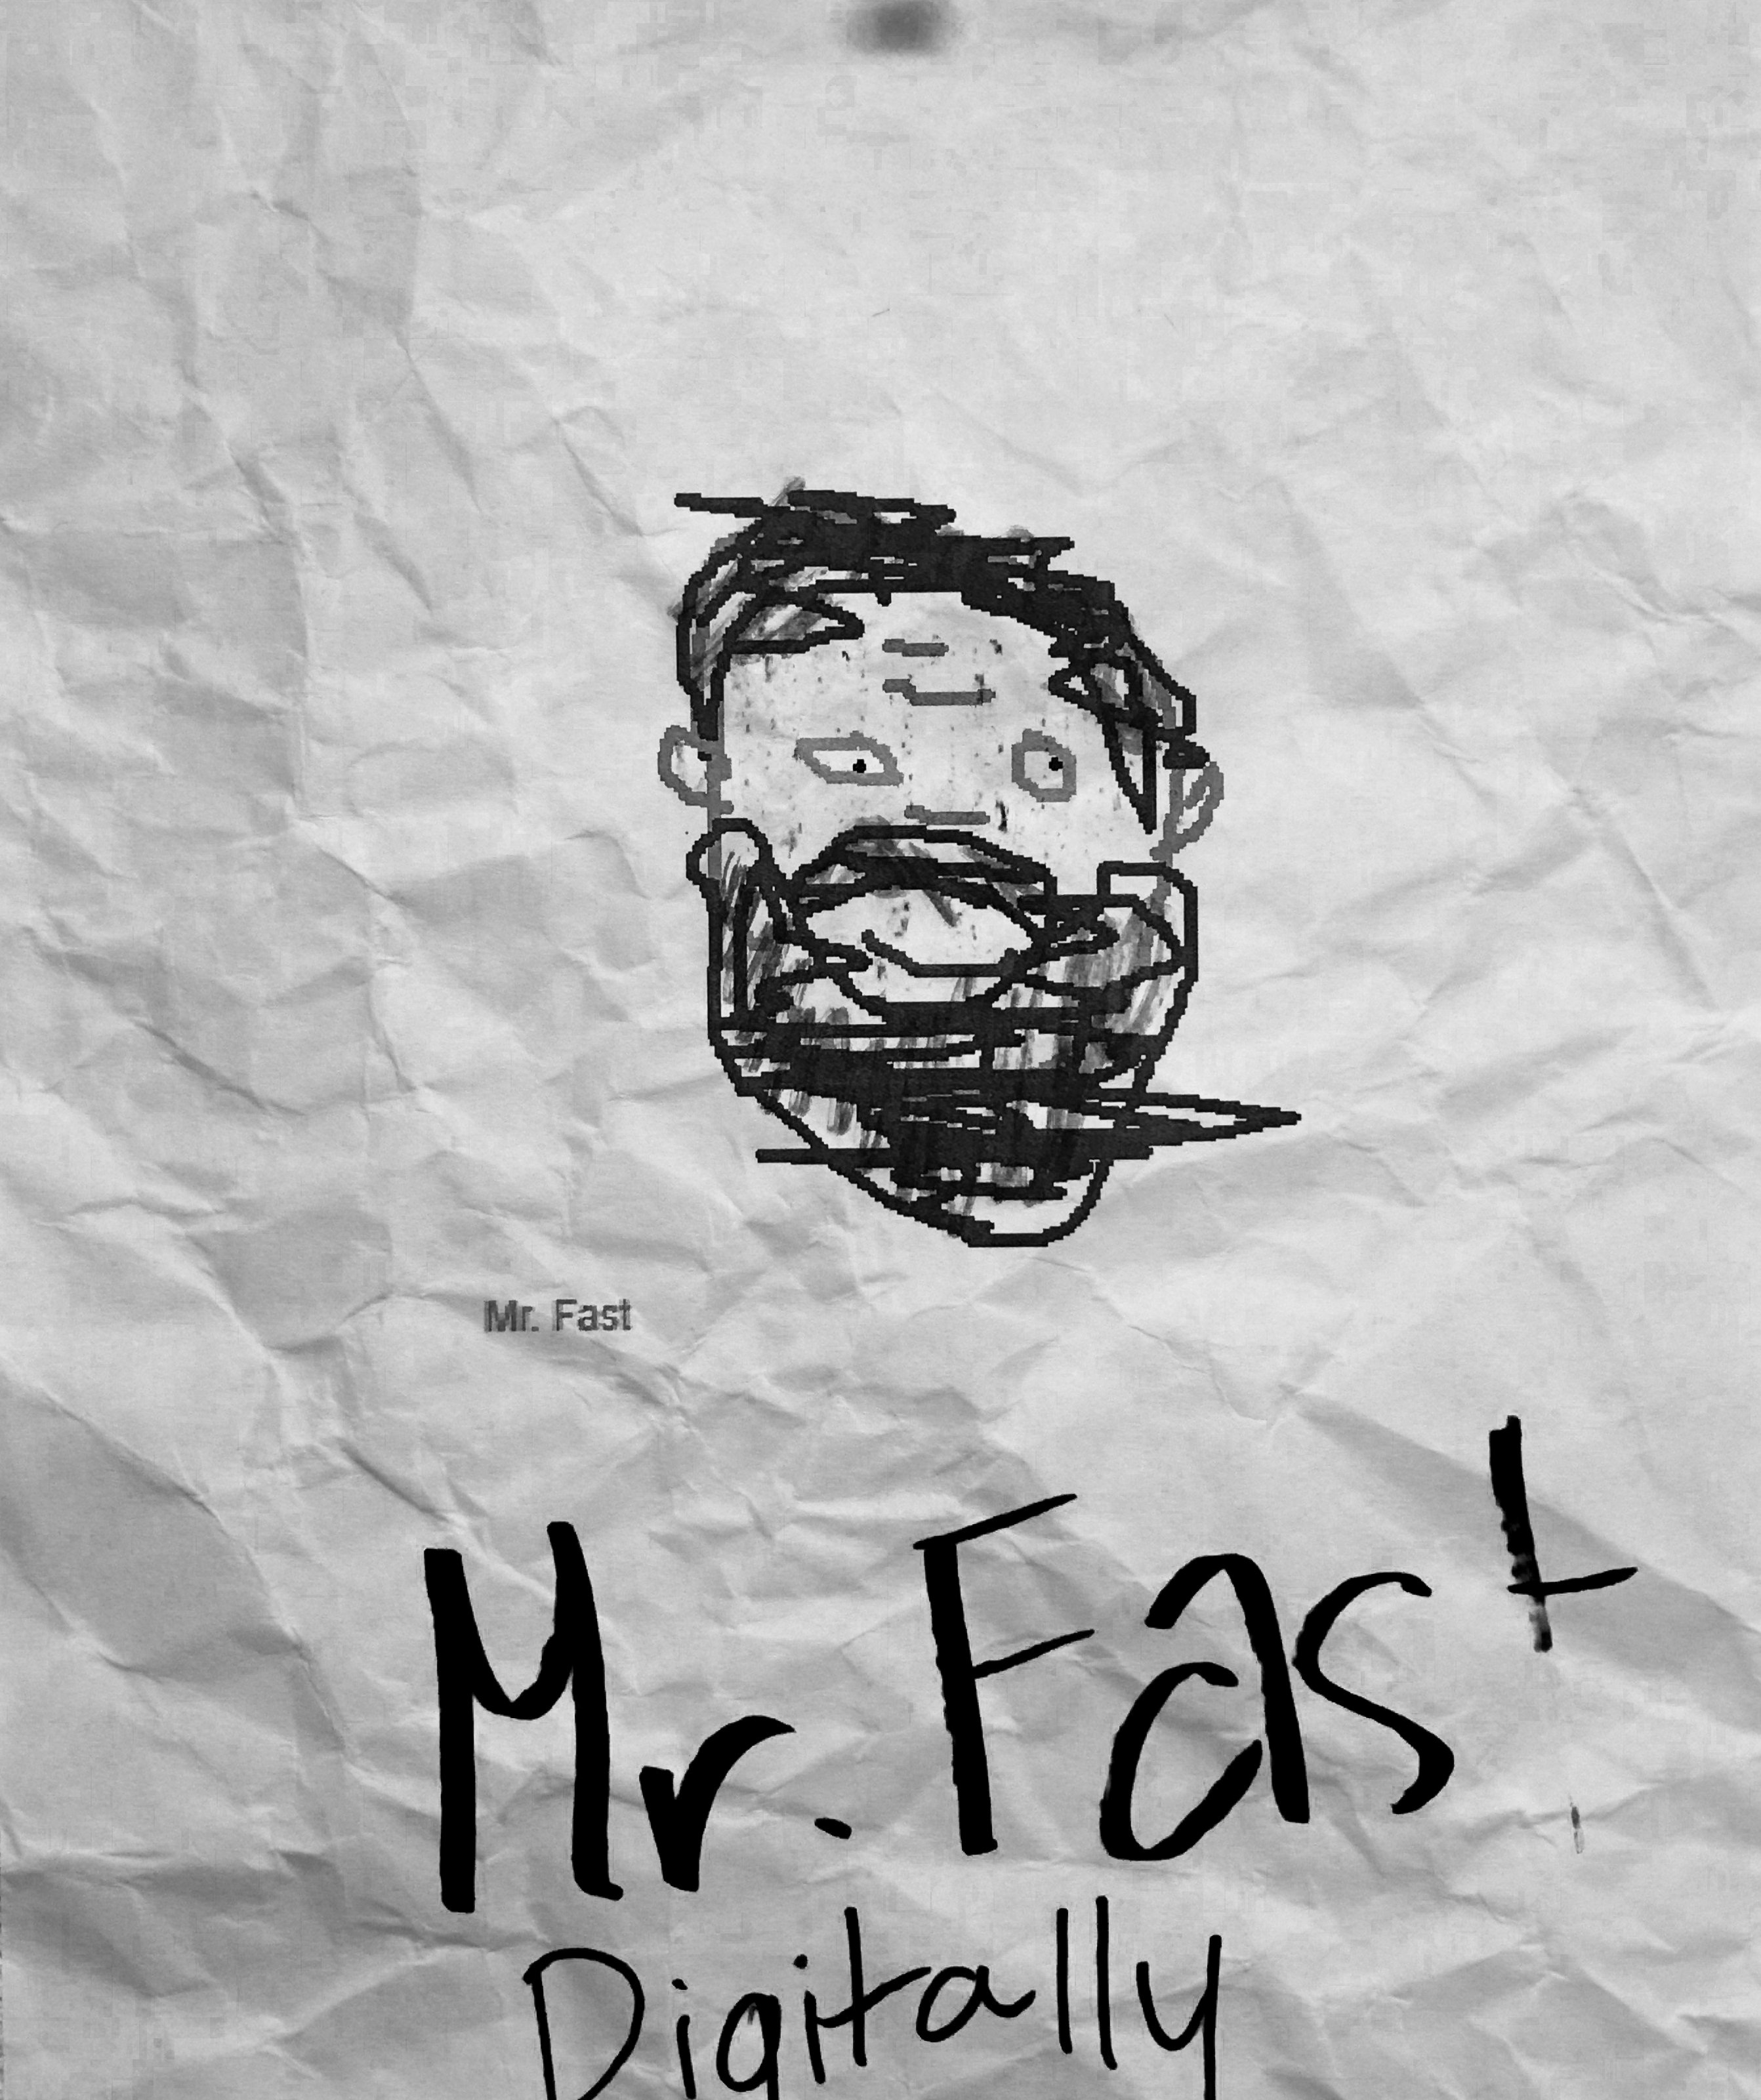 Mr. Fast
Mr. Fast
Digitally